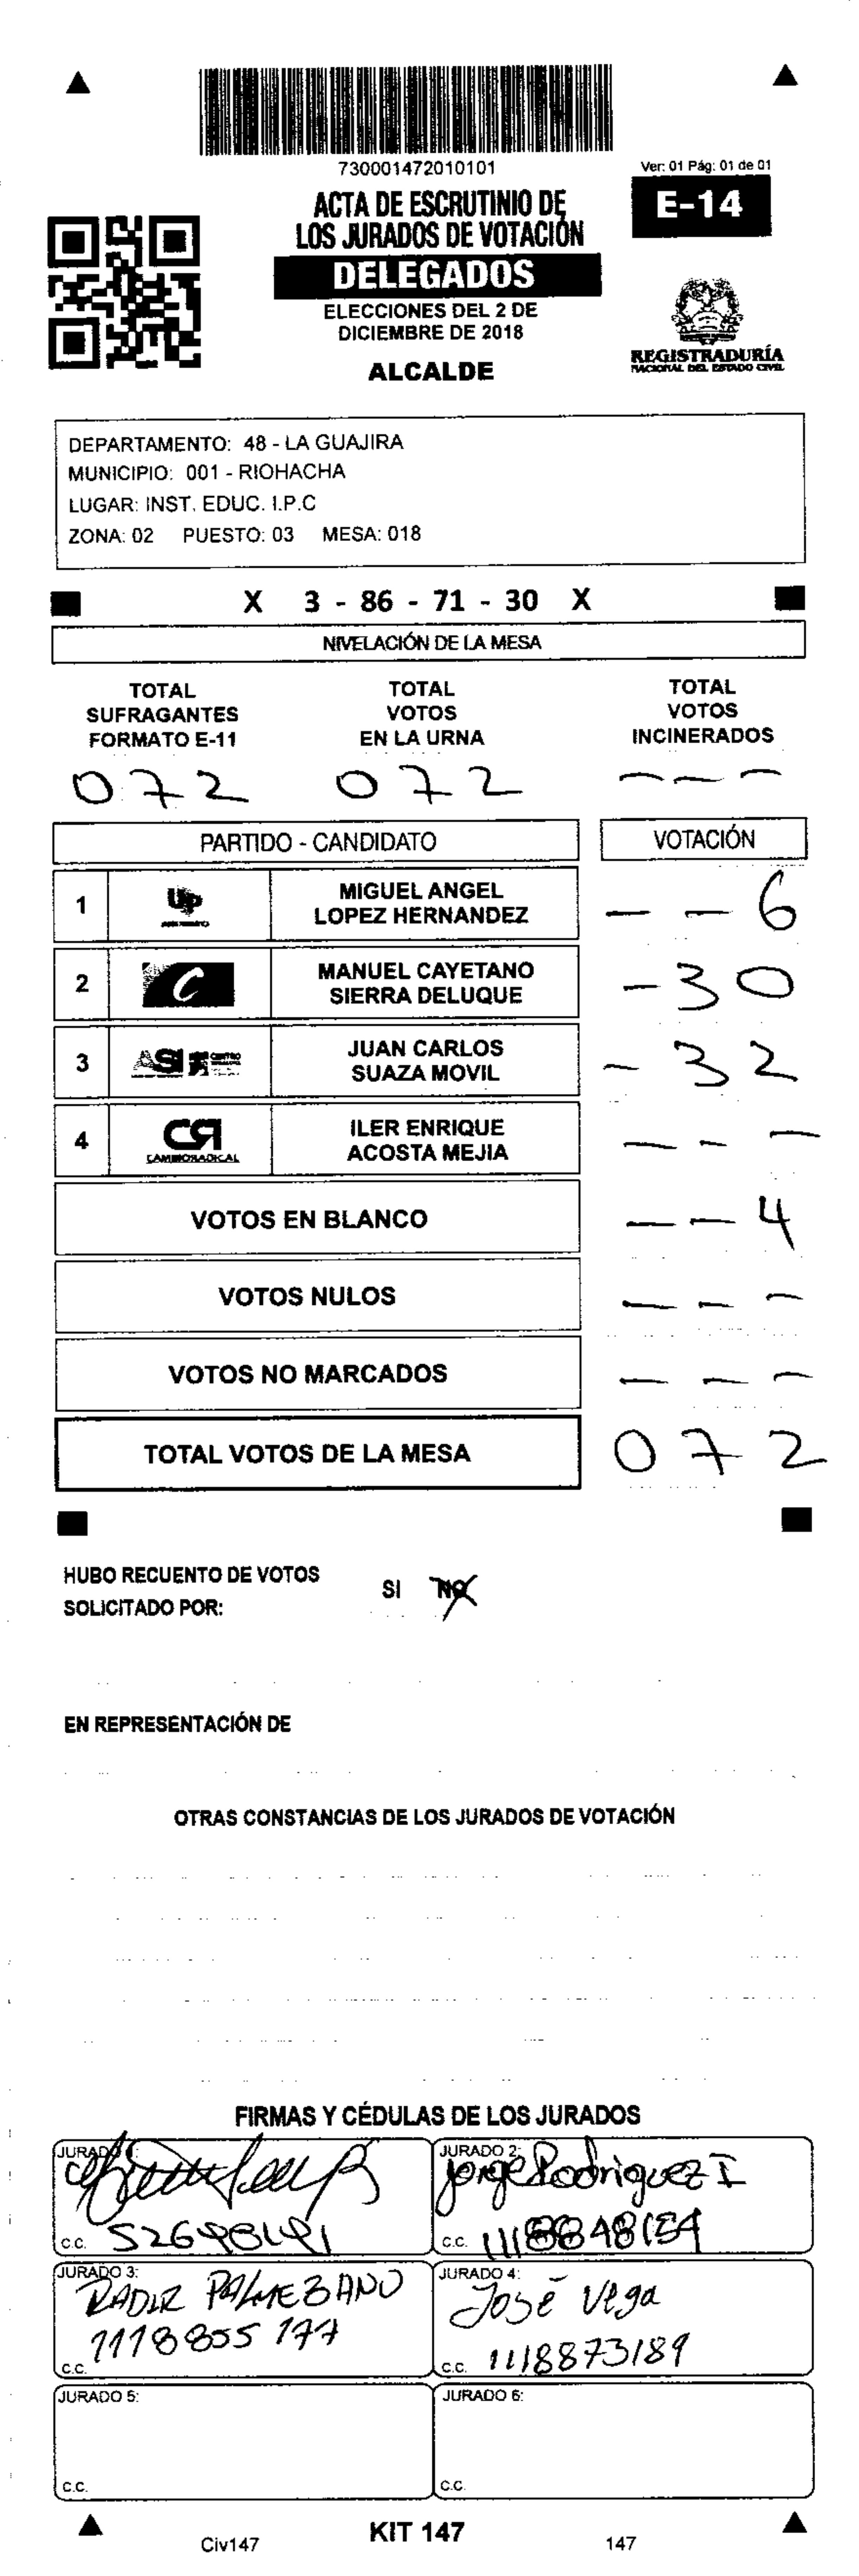 730001472010101
Ver: 01 Pág: 01 de 01
ACTA DE ESCRUTINIO DE
LOS JURADOS DE VOTACIÓN
E-14
DELEGADOS
ELECCIONES DEL 2 DE
DICIEMBRE DE 2018
ALCALDE
REGISTRADURÍA
NACIONAL DEL ESTADO CIVIL
DEPARTAMENTO: 48 - LA GUAJIRA
MUNICIPIO: 001 - RIOHACHA
LUGAR: INST. EDUC. I.P.C
ZONA: 02 PUESTO: 03 MESA: 018
X 3 - 86 - 71 - 30 X
NIVELACIÓN DE LA MESA
TOTAL SUFRAGANTES FORMATO E-11
TOTAL VOTOS EN LA URNA
TOTAL VOTOS INCINERADOS
072 072 ---
PARTIDO - CANDIDATO VOTACIÓN
1 Up MIGUEL ANGEL LOPEZ HERNANDEZ --6
2 C MANUEL CAYETANO SIERRA DELUQUE -30
3 ASI CENTRO JUAN CARLOS SUAZA MOVIL -32
4 CR CAMBIO RADICAL ILER ENRIQUE ACOSTA MEJIA ---
VOTOS EN BLANCO --4
VOTOS NULOS ---
VOTOS NO MARCADOS ---
TOTAL VOTOS DE LA MESA 072
HUBO RECUENTO DE VOTOS SI NO
SOLICITADO POR:
EN REPRESENTACIÓN DE
OTRAS CONSTANCIAS DE LOS JURADOS DE VOTACIÓN
FIRMAS Y CÉDULAS DE LOS JURADOS
JURADO 1:
C.C.
JURADO 2:
Jorge Rodriguez I
C.C.
JURADO 3:
RADIR PALMEZANO
C.C. 1118855177
JURADO 4:
José Vega
C.C. 1118873189
JURADO 5:
C.C.
JURADO 6:
C.C.
Civ147 KIT 147 147